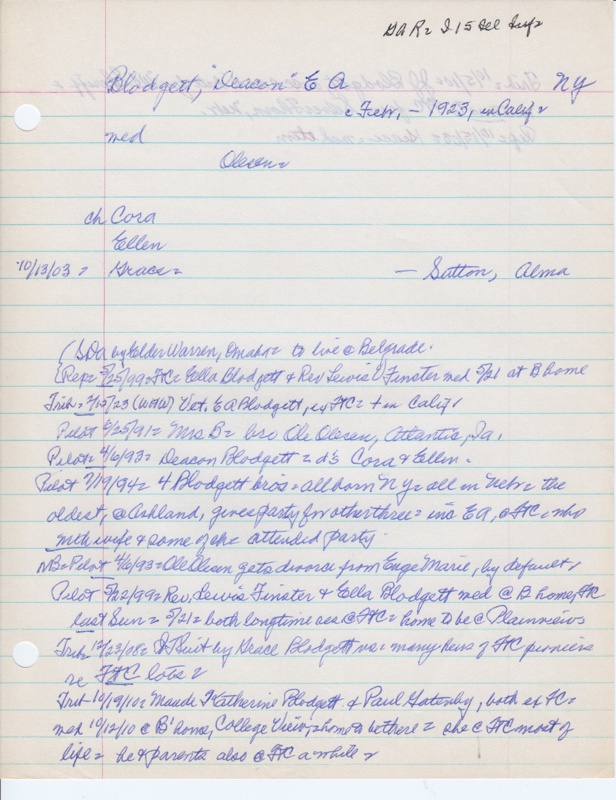 DAR=
Blodgett, "Deacon" E A NY
c Feb, - 1923, in Calif=
med
Olesen=
ch Cora
Ellen
10/13/03 = Grace= — Sutton, Alma
by Elder Warren, Omaha= to live @ Belgrade.
Rep= 5/25/99= FC= Ella Blodgett & Rev Lewis Finster med 5/21 at B home
Trib= 2/15/23 Vet. E A Blodgett, ex FC= + in Calif
Pilot 6/25/91= Mrs B= bro Ole Olesen, Atlantic, Ia.
Pilot= 4/6/93= Deacon Blodgett= d's Cora & Ellen.
Pilot 7/19/94= 4 Blodgett bros= all born NY= all in Nebr= the
oldest, @ Ashland, gives party for other three= inc EA, @ FC= who
with wife & some of ch= attended party.
NB= Pilot 4/6/93= Ole Olesen gets divorce from Enge Marie, by default,
Pilot 5/22/99= Rev. Lewis Finster & Ella Blodgett med @ B home, FC
last Sun= 5/21= both longtime res @ FC= home to be @ Plainview
Trib= 12/23/08= Suit by Grace Blodgett vs= many heirs of FC pioneers
re FC lots=
Trib= 10/19/10= Maude Katherine Blodgett & Paul Gatenby, both ex FC=
med 10/12/10 @ B' home, College View, = home to be there= she @ FC most of
life= he & parents also @ FC a while=